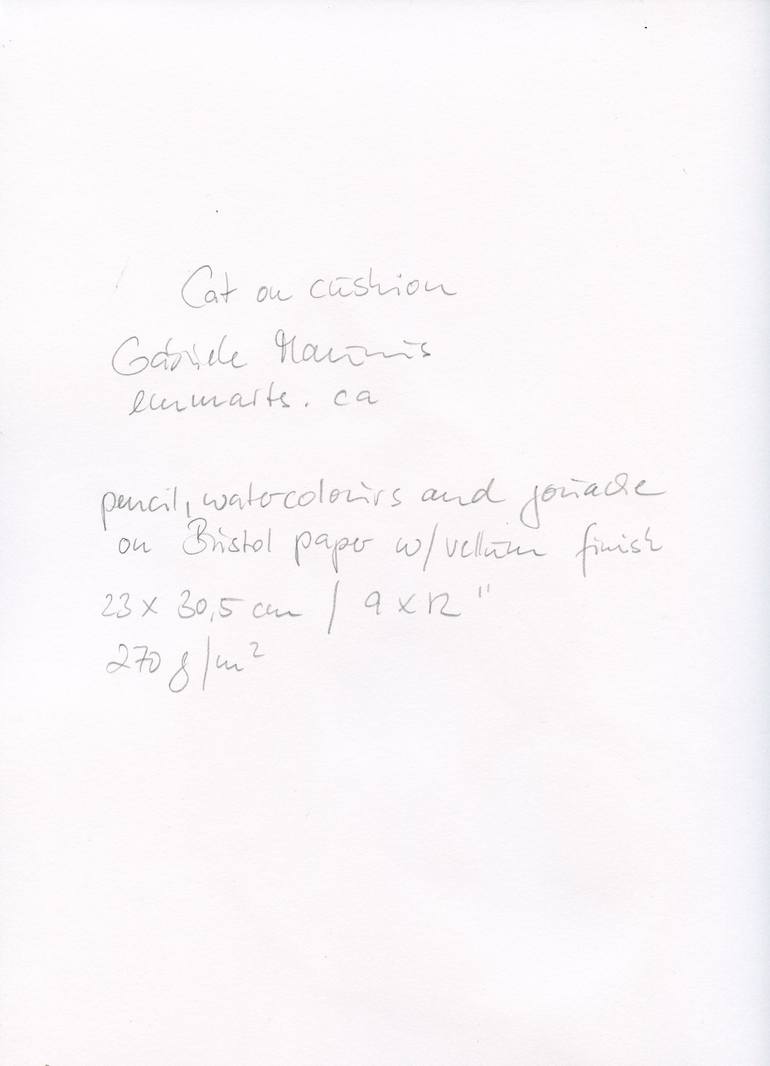 Cat on cushion
Gabriele
emmarts.ca
pencil, watercolours and gouache
on Bristol paper w/vellum finish
23 x 30,5 cm / 9 x 12"
270 g/m²